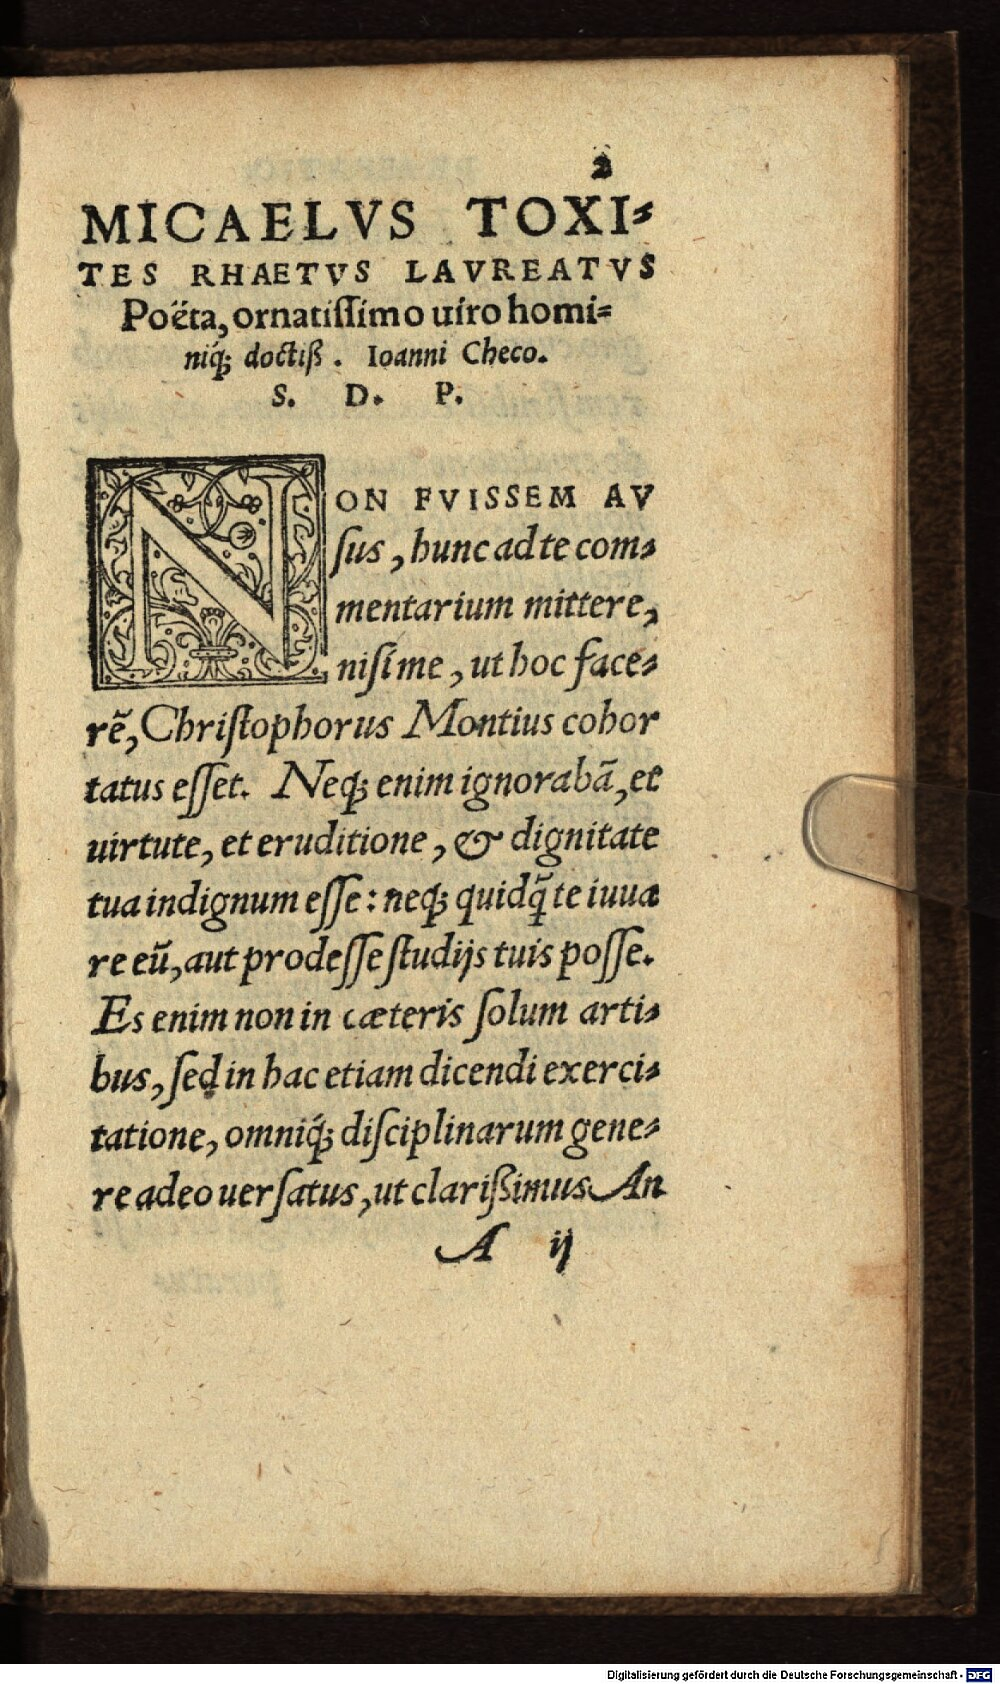 2
MICAELVS TOXI-
TES RHAETVS LAVREATVS
Poëta, ornatiſſimo uiro homi-
niq́; doctiß. Ioanni Checo.
S. D. P.
NON FVISSEM AV
ſus, hunc ad te com-
mentarium mittere,
niſi me, ut hoc face-
rẽ, Chriſtophorus Montius cohor
tatus eſſet. Neq; enim ignorabã, et
uirtute, et eruditione, & dignitate
tua indignum eſſe: neq; quidq̃ te iuua
re eũ, aut prodeſſe ſtudijs tuis poſſe.
Es enim non in cæteris ſolum arti-
bus, ſed in hac etiam dicendi exerci-
tatione, omniq́; diſciplinarum gene-
re adeo uerſatus, ut clarißimus An
A ij
Digitalisierung gefördert durch die Deutsche Forschungsgemeinschaft - DFG